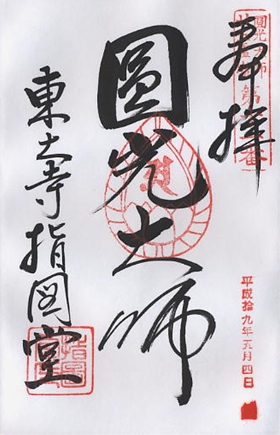 奉拝
圓光大師
東大寺指図堂
平成拾九年五月四日